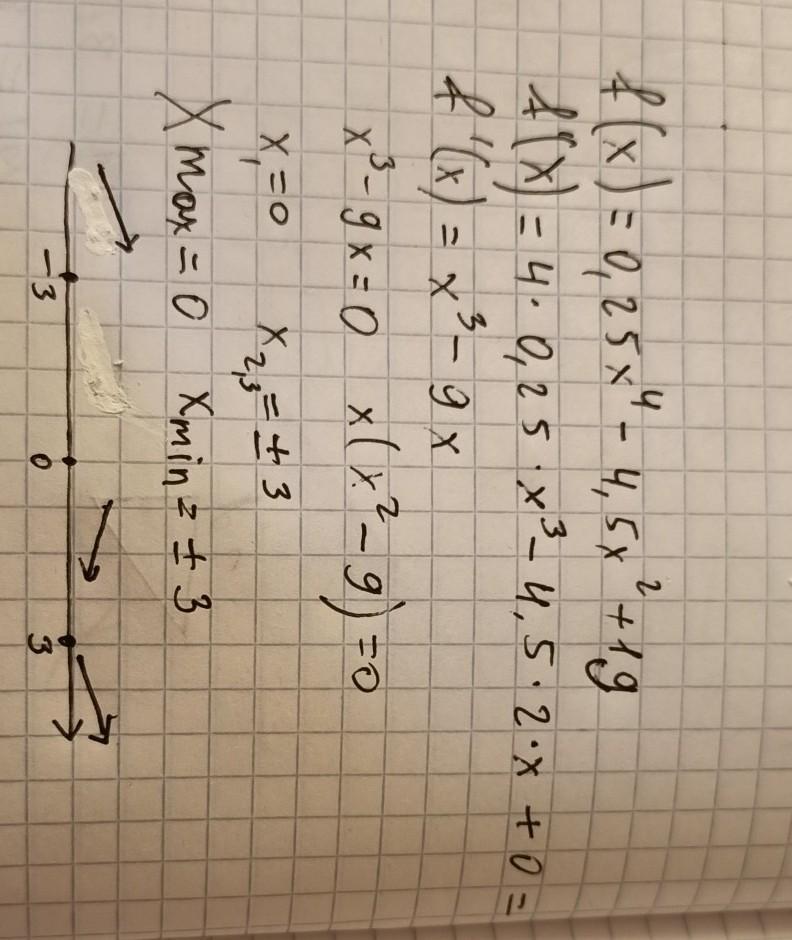 f(x) = 0,25x⁴ - 4,5x² + 19
f'(x) = 4·0,25·x³ - 4,5·2·x + 0 =
f'(x) = x³ - 9x
x³ - 9x = 0 x(x² - 9) = 0
x₁ = 0 x₂,₃ = ±3
X max = 0 x min = ±3
-3 0 3